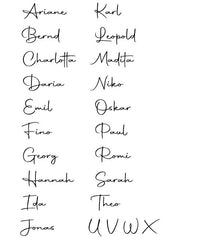 Ariane Karl
Bernd Leopold
Charlotta Madita
Daria Niko
Emil Oskar
Fino Paul
Georg Romi
Hannah Sarah
Ida Theo
Jonas U V W X